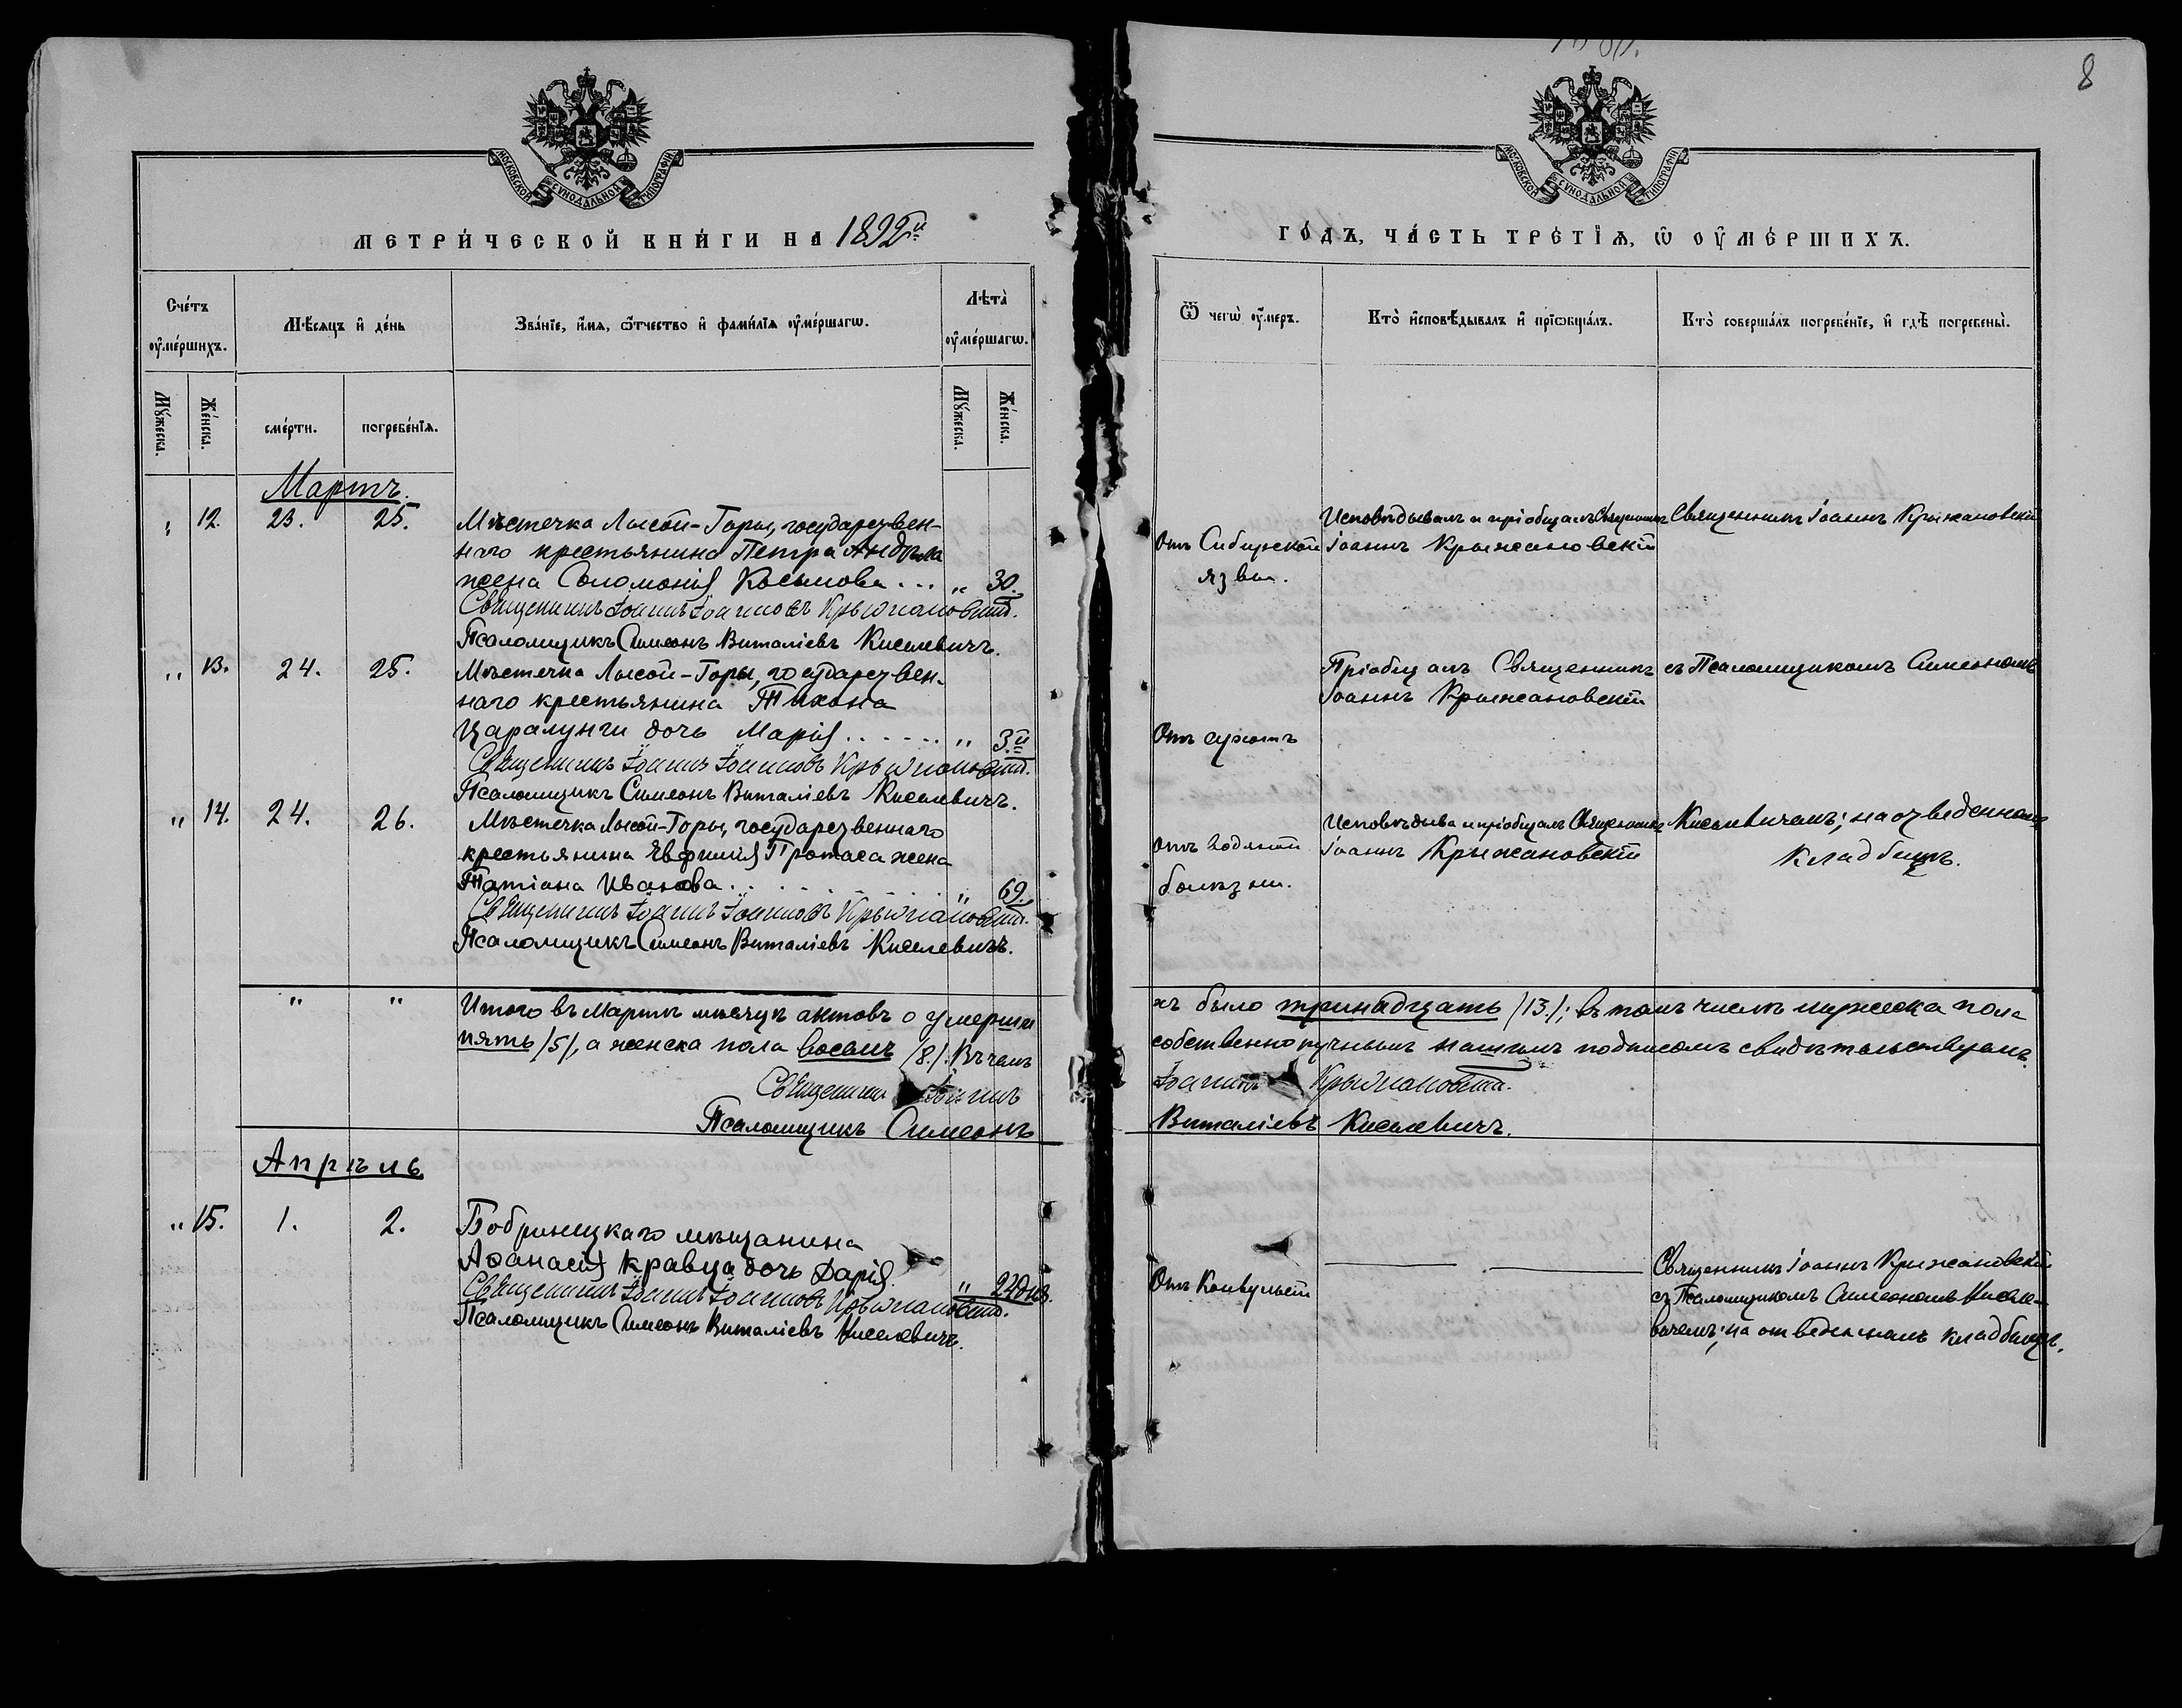 8
МОСКОВСКОЙ СѴНОДАЛЬНОЙ ТИПОГРАФІИ
МОСКОВСКОЙ СѴНОДАЛЬНОЙ ТИПОГРАФІИ
МЕТРИ́ЧЕСКОЙ КНИ́ГИ НА 1892й
ГО́ДЪ, ЧА́СТЬ ТРЕ́ТІѦ, Ѡ ОУ҆МЕ́РШИХЪ.
Сче́тъ оу҆ме́ршихъ.
Мѣ́сяцъ и҆ де́нь
Зва́нїе, и҆́мѧ, ѻ҆́тчество и҆ фами́лїѧ оу҆ме́ршагѡ.
Лѣта̀ оу҆ме́ршагѡ.
Ѿ чегѡ̀ оу҆́меръ.
Кто̀ и҆сповѣ́дывалъ и҆ прїѡбща́лъ.
Кто̀ соверша́лъ погребе́нїе, и҆ гдѣ̀ погребены̀.
Мꙋ́жеска.
Же́нска.
сме́рти.
погребе́нїѧ.
Мꙋ́жеска.
Же́нска.
Мартъ.
" 12. 23. 25. Мѣстечка Лысой-Горы, государствен-
наго крестьянина Петра
жена Соломонія Косьмова... " 30.
Священникъ Іоаннъ Іоанновъ Крыжановскій.
Псаломщикъ Симеонъ Виталіевъ Киселевичъ.
Отъ Сибирской
язвы.
Исповѣдывалъ и пріобщалъ Священникъ
Іоаннъ Крыжановскій
Священникъ Іоаннъ Крыжановскій
" 13. 24. 25. Мѣстечка Лысой-Горы, государствен-
наго крестьянина Тихона
Царалунги дочь Марія...... " 3.й
Священникъ Іоаннъ Іоанновъ Крыжановскій.
Псаломщикъ Симеонъ Виталіевъ Киселевичъ.
Отъ сухотъ
Пріобщалъ Священникъ
Іоаннъ Крыжановскій
съ Псаломщикомъ Симеономъ
" 14. 24. 26. Мѣстечка Лысой-Горы, государственнаго
крестьянина Евфимія Протаса жена
Татіана Иванова. " 69.
Священникъ Іоаннъ Іоанновъ Крыжановскій.
Псаломщикъ Симеонъ Виталіевъ Киселевичъ.
Отъ водяной
болѣзни.
Исповѣдыва и пріобщалъ Священникъ
Іоаннъ Крыжановскій
Киселевичемъ; на отведенномъ
кладбищѣ.
" " Итого въ Мартѣ мѣсяцѣ актовъ о умерши
хъ было тринадцать /13./; въ томъ числѣ мужеска пола
пять /5/, а женска пола восемь /8./. Въ чемъ
собственноручнымъ нашимъ подписомъ свидѣтельствуемъ.
Священникъ Іоаннъ
Іоанновъ Крыжановскій.
Псаломщикъ Симеонъ
Виталіевъ Киселевичъ.
Апрѣль
" 15. 1. 2. Бобринецкаго мѣщанина
Аѳанасія Кравца дочь Дарія. " 22 дня.
Священникъ Іоаннъ Іоанновъ Крыжановскій.
Псаломщикъ Симеонъ Виталіевъ Киселевичъ.
Отъ Конвульсій
Священникъ Іоаннъ Крыжановскій
съ Псаломщикомъ Симеономъ Киселе-
вичемъ; на отведенномъ кладбищѣ.